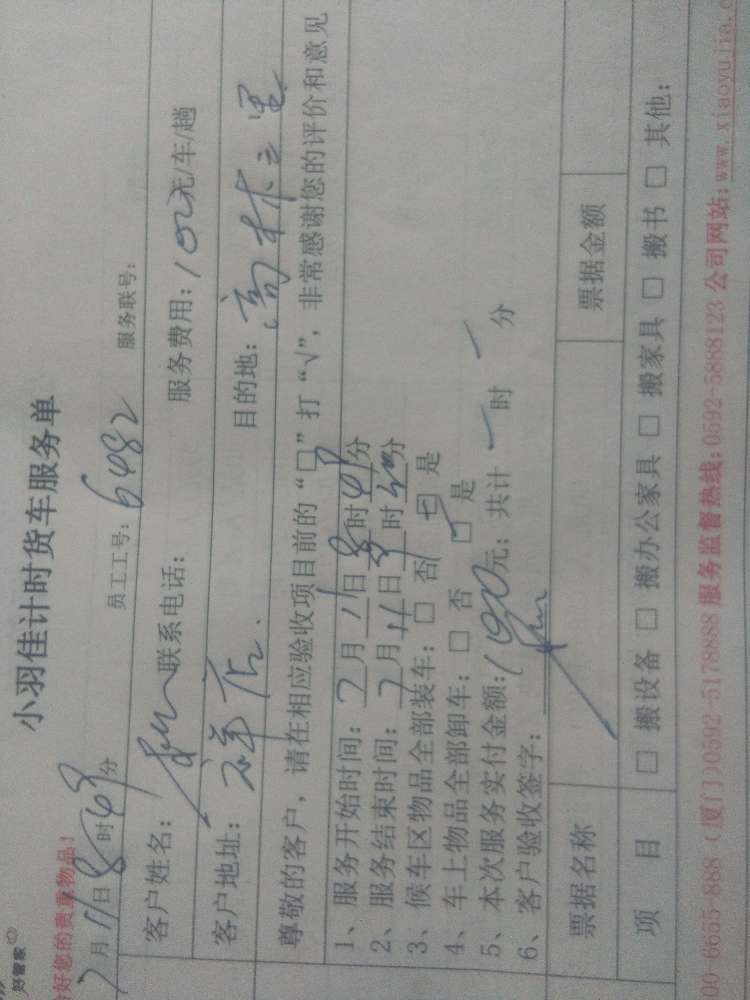 好管家
小羽佳计时货车服务单
好您的贵重物品！
7月11日8时49分 员工工号：6482 服务联号：
客户姓名： 联系电话： 服务费用：100元/车/趟
客户地址：祥店. 目的地：高林
尊敬的客户，请在相应验收项目前的“□”打“√”，非常感谢您的评价和意见
1、服务开始时间：7月11日8时49分
2、服务结束时间：7月11日时分
3、候车区物品全部装车：□ 否 □ 是
4、车上物品全部卸车：□ 否 □ 是
5、本次服务实付金额：100元；共计 一 时 一 分
6、客户验收签字：
票据名称 票据金额
项 目 □ 搬设备 □ 搬办公家具 □ 搬家具 □ 搬书 □ 其他：
00-6655-888（厦门）0592-5178888 服务监督热线：0592-5888123 公司网站：www.xiaoyujia.c